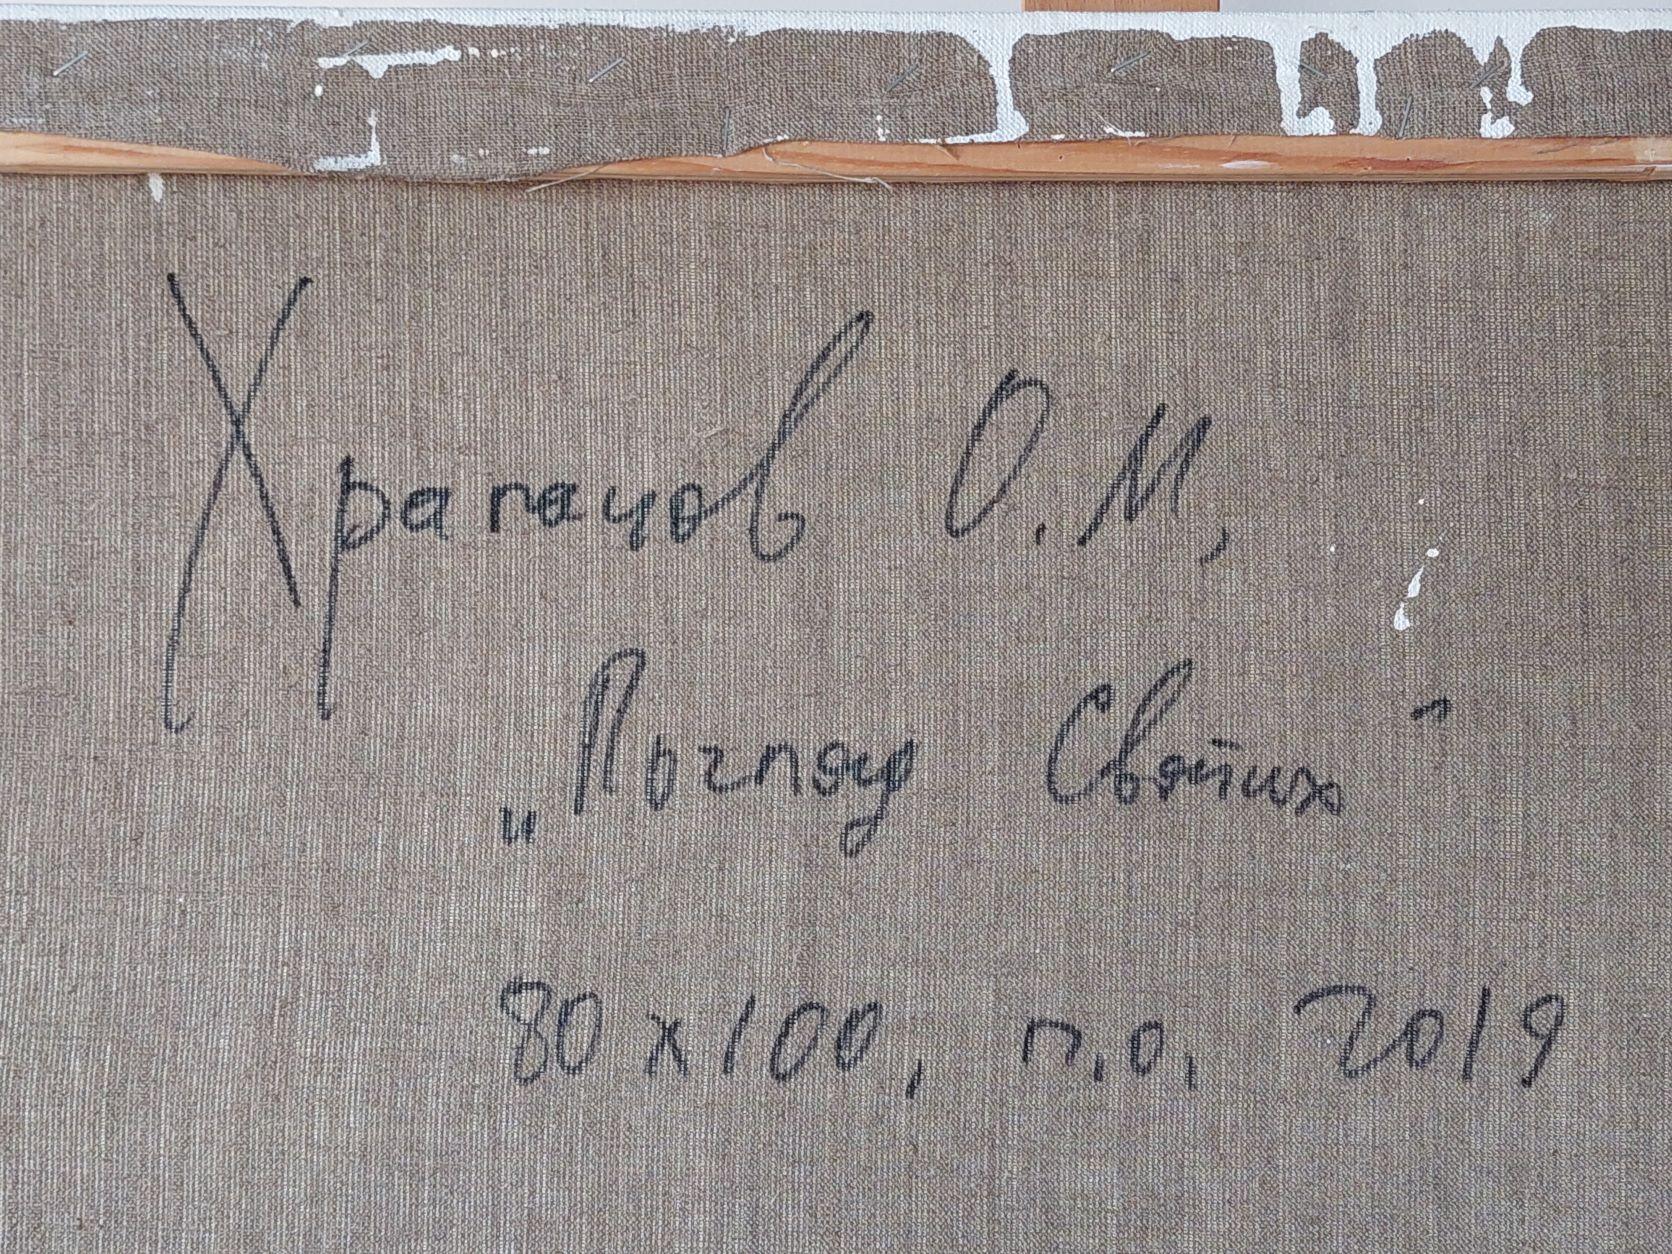 Храпачов О.М,
„Погляд Святих"
80х100, п.о, 2019